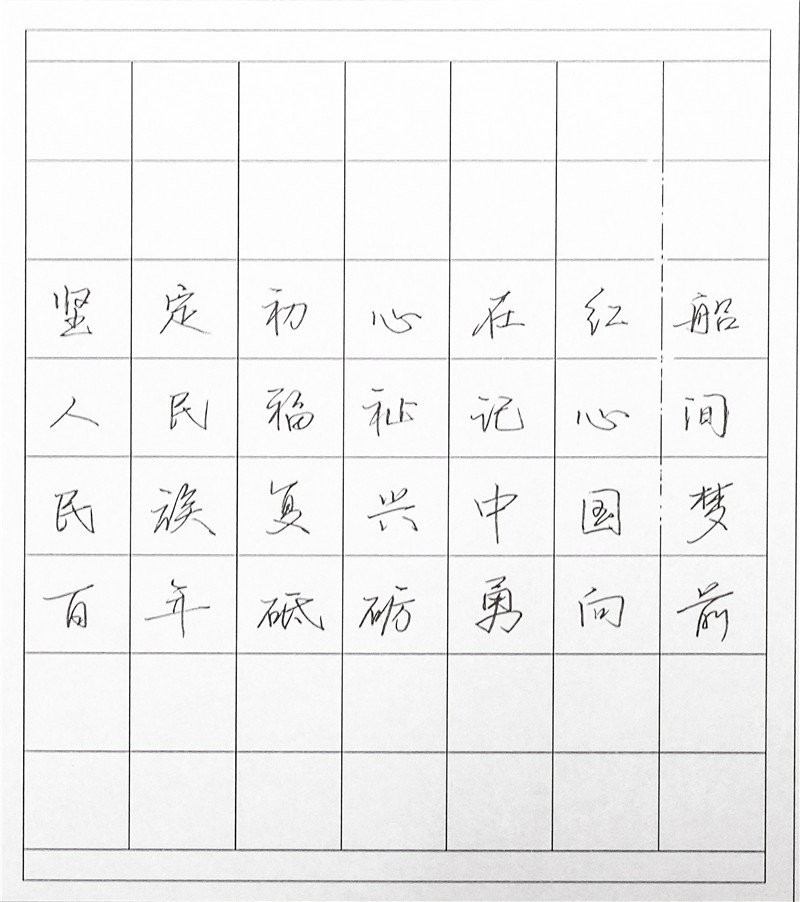 坚定初心在红船
人民福祉记心间
民族复兴中国梦
百年砥砺勇向前